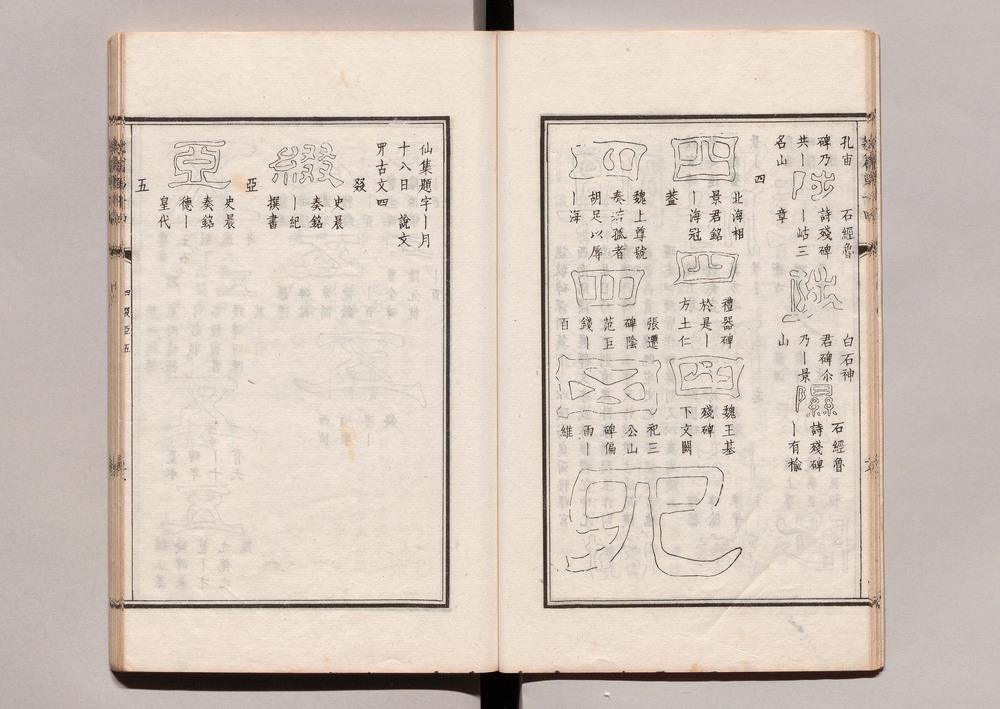 孔宙
碑乃
共｜
名山
陟
石經魯
詩殘碑
｜岵三
章
陟
白石神
君碑尒
乃｜景
山
隰
石經魯
詩殘碑
｜有榆
四
四
北海相
景君銘
｜海冠
蓋
四
禮器碑
於是｜
方土仁
四
魏王基
殘碑
下文闕
四
魏上尊號
奏
孤者
胡足以辱
｜海
四
張遷
碑陰
范巨
錢｜
百
祀三
公山
碑偏
雨｜
維
仙集題字｜月
十八日 說文
古文四
叕
綴
史晨
奏銘
｜紀
撰書
亞
亞
史晨
奏銘
德｜
皇代
五
四叕亞五